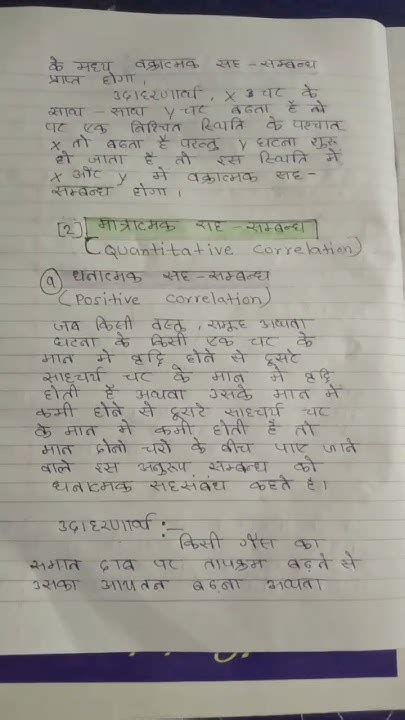 के मध्य वक्रात्मक सह-सम्बन्ध
प्राप्त होगा,
उदाहरणार्थ, X 3 चर के
साथ-साथ Y चर बढ़ता है तो
पर एक निश्चित स्थिति के पश्चात
X तो बढ़ता है परन्तु Y घटना शुरू
हो जाता है तो इस स्थिति में
X और Y में वक्रात्मक सह-
सम्बन्ध होगा,
[2] मात्रात्मक सह-सम्बन्ध
(Quantitative correlation)
a) धनात्मक सह-सम्बन्ध
(Positive correlation)
जब किसी वस्तु, समूह अथवा
घटना के किसी एक चर के
मान में वृद्धि होने से दूसरे
साहचर्य चर के मान में वृद्धि
होती है अथवा उसके मान में
कमी होने से दूसरे साहचर्य चर
के मान में कमी होती है तो
मान दोनो चरो के बीच पाए जाने
वाले इस अनुरूप सम्बन्ध को
धनात्मक सहसंबंध कहते है।
उदाहरणार्थ :-
किसी गैस का
समान दाब पर तापक्रम बढ़ने से
उसका आयतन बढ़ना अथवा